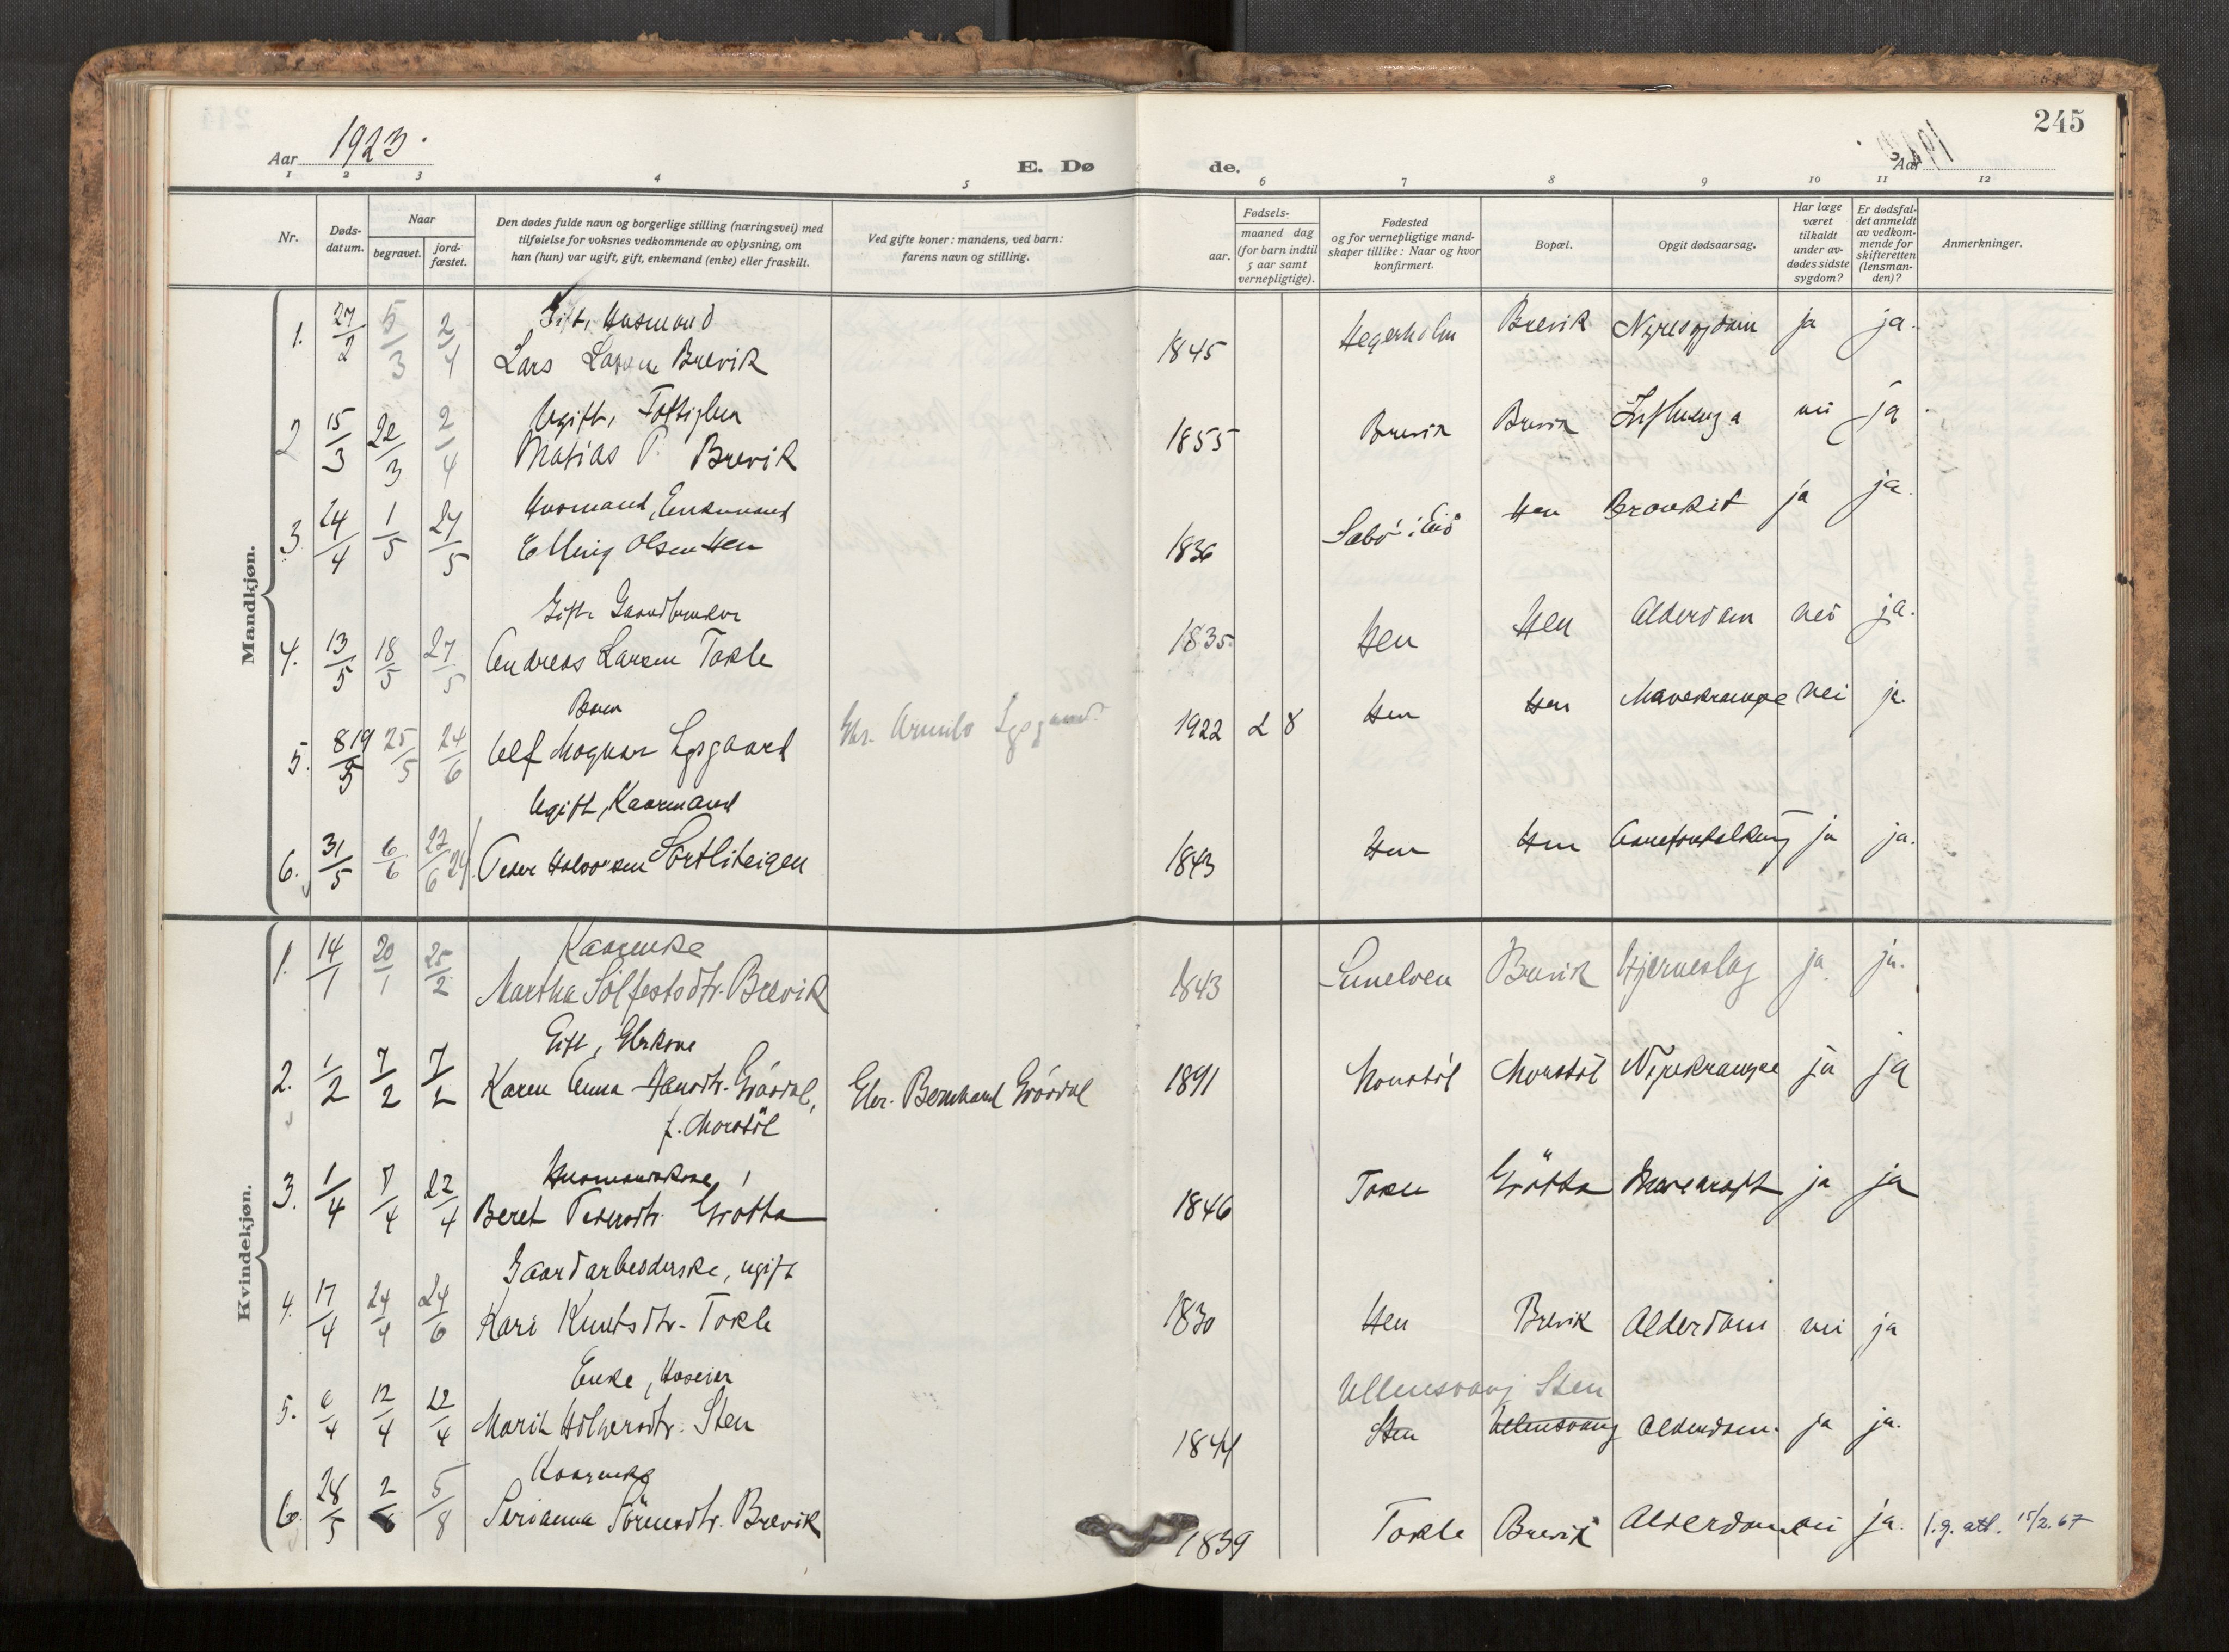 245
Aar 1923.
E. Døde.
Aar
1 2 3 4 5 6 7 8 9 10 11 12
Nr.
Døds-datum.
Naar
begravet.
jord-fæstet.
Den dødes fulde navn og borgerlige stilling (næringsvei) med
tilføielse for voksnes vedkommende av oplysning, om
han (hun) var ugift, gift, enkemand (enke) eller fraskilt.
Ved gifte koner: mandens, ved barn:
farens navn og stilling.
Fødsels-
aar.
maaned dag
(for barn indtil
5 aar samt
vernepligtige).
Fødested
og for vernepligtige mand-
skaper tillike: Naar og hvor
konfirmert.
Bopæl.
Opgit dødsaarsag.
Har læge
været
tilkaldt
under av-
dødes sidste
sygdom?
Er dødsfal-
det anmeldt
av vedkom-
mende for
skifteretten
(lensman-
den)?
Anmerkninger.
Mandkjøn.
Gift, Husmand
1. 27/2 5/3 2/4 Lars Larsen Brevik 1845 Hegerholm Brevik Nyresygdom ja ja.
Ugift,
2 15/3 22/3 2/4 Matias P. Brevik 1855 Brevik Brevik Influenza nei ja
Husmand, Enkemand
3. 24/4 1/5 27/5 Elling Olsen Hen 1836 Hen Bronkit ja ja.
Gift Gaardbruker
4. 13/5 18/5 27/5 Andreas Larsen Tokle 1835. Hen Hen Alderdom nei ja.
Barn
5. 19/5 25/5 24/6 Alf Magnar Lysgaard 1922 2 8 Hen Hen Mavekrampe nei ja.
Ugift, Kaarmand
6. 31/5 6/6 Peder Halvorsen Sortliteigen 1843 Hen Hen ja ja.
Kvindekjøn.
Kaarenke
1. 14/1 20/1 25/2 Martha Sølfestsdtr. Brevik 1843 Sunelven Brevik Hjerneslag ja ja.
Gift,
2. 1/2 7/2 7/2 Karen Anna Hansdtr. Grøvdal, Gbr. Bernhard Grøvdal 1891 Morstøl Morstøl Nyrekrampe ja ja
f. Morstøl
Husmandskone,
3. 1/4 8/4 22/4 Beret Pedersdtr. Grøtta 1846 Tokle Grøtta ja ja
Gaardarbeiderske, ugift
4. 17/4 24/4 24/6 Kari Knutsdtr. Tokle 1830 Hen Brevik Alderdom nei ja
Enke, Huseier Ullensvang Sten
5. 6/4 12/4 22/4 Marit Holgersdtr. Sten 1844 Sten Ullensvang Alderdom. ja ja.
Kaarenke
6. 28/5 2/6 5/8 Serianna Sørensdtr. Brevik 1839 Tokle Brevik Alderdom nei ja. l.g. att. 15/2.67